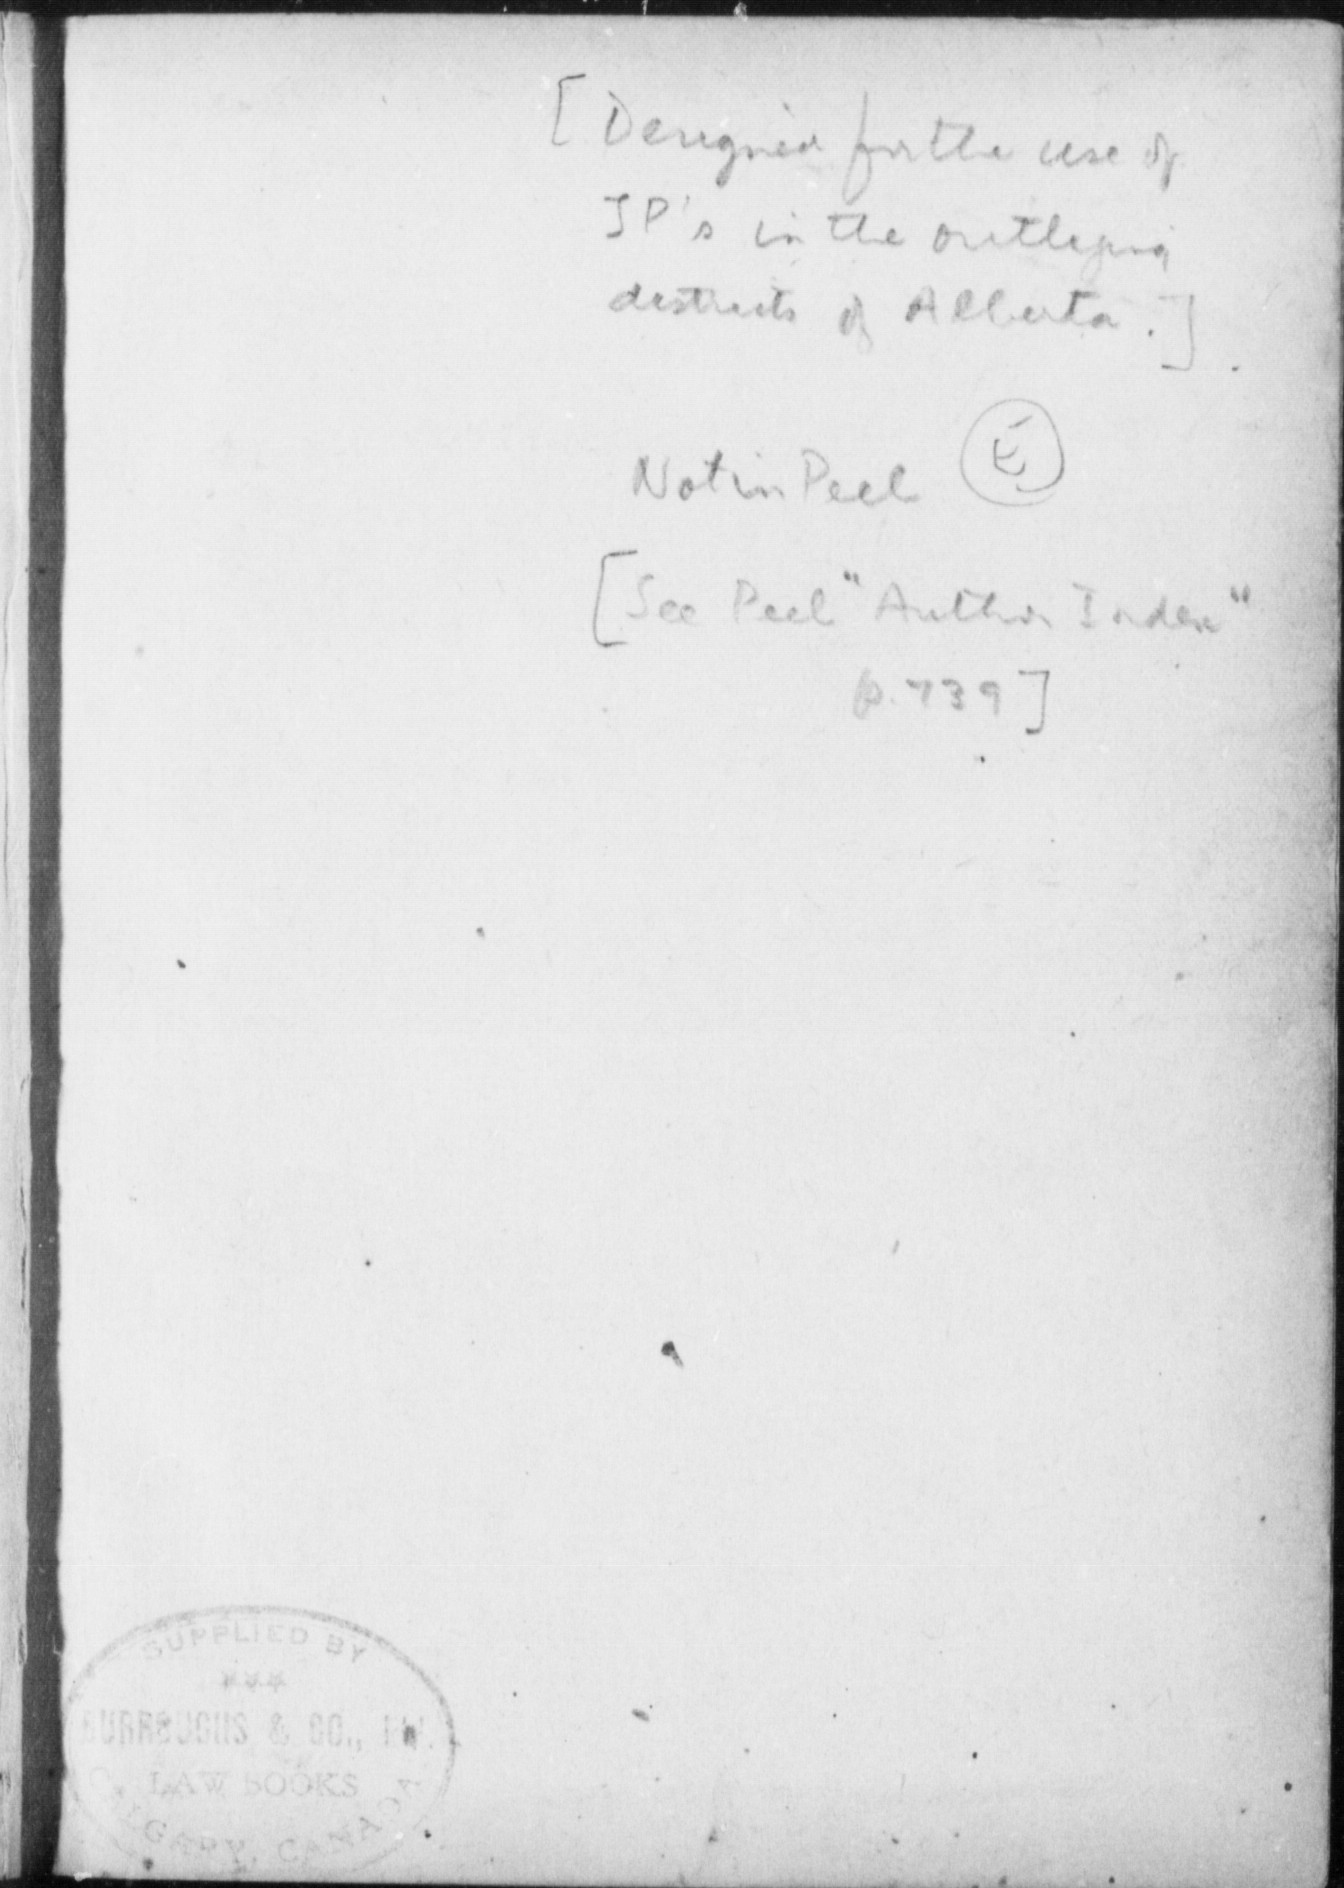 [Designed for the use of
JP's in the outlying
districts of Alberta.]
Not in Peel E
[See Peel "Author Index"
p.739]
SUPPLIED BY
***
BURROUGHS & CO., Ltd.
LAW BOOKS
CALGARY, CANADA